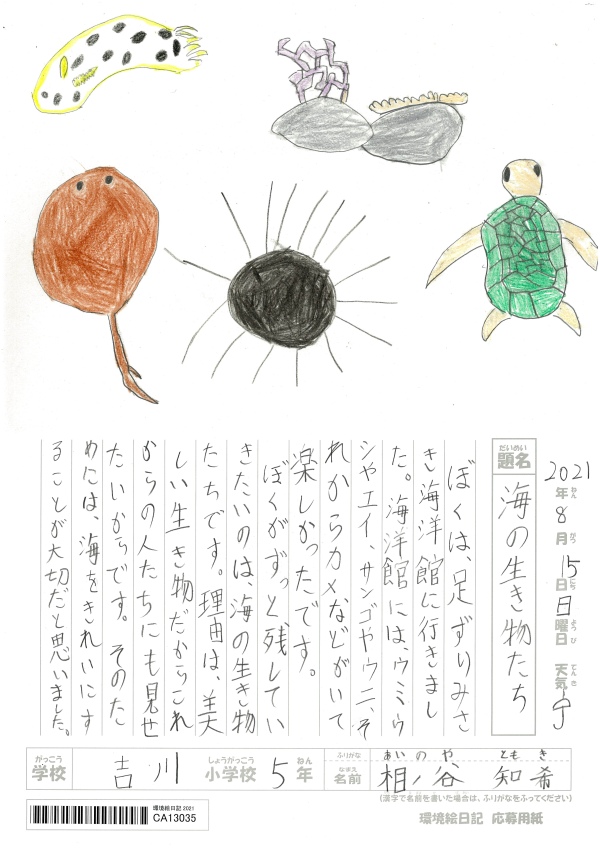 2021年ねん8月がつ15日にち日曜日ようび天気てんき
題名だいめい
海の生き物たち
ぼくは、足ずりみさ
き海洋館に行きまし
た。海洋館には、ウミウ
シやエイ、サンゴやウニ、そ
れからカメなどがいて
楽しかったです。
ぼくがずっと残してい
きたいのは、海の生き物
たちです。理由は、美
しい生き物だからこれ
からの人たちにも見せ
たいからです。そのた
めには、海をきれいにす
ることが大切だと思いました。
がっこう しょうがっこう ねん ふりがな あいのや ともき
学校 吉川 小学校 5年 なまえ 名前 相ノ谷 知希
(漢字で名前を書いた場合は、ふりがなをふってください)
環境絵日記 応募用紙
環境絵日記 2021
CA13035